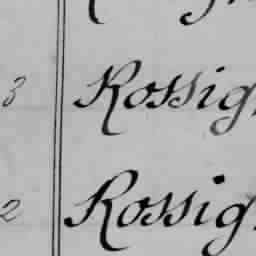 3 Rossig
2 Rossig